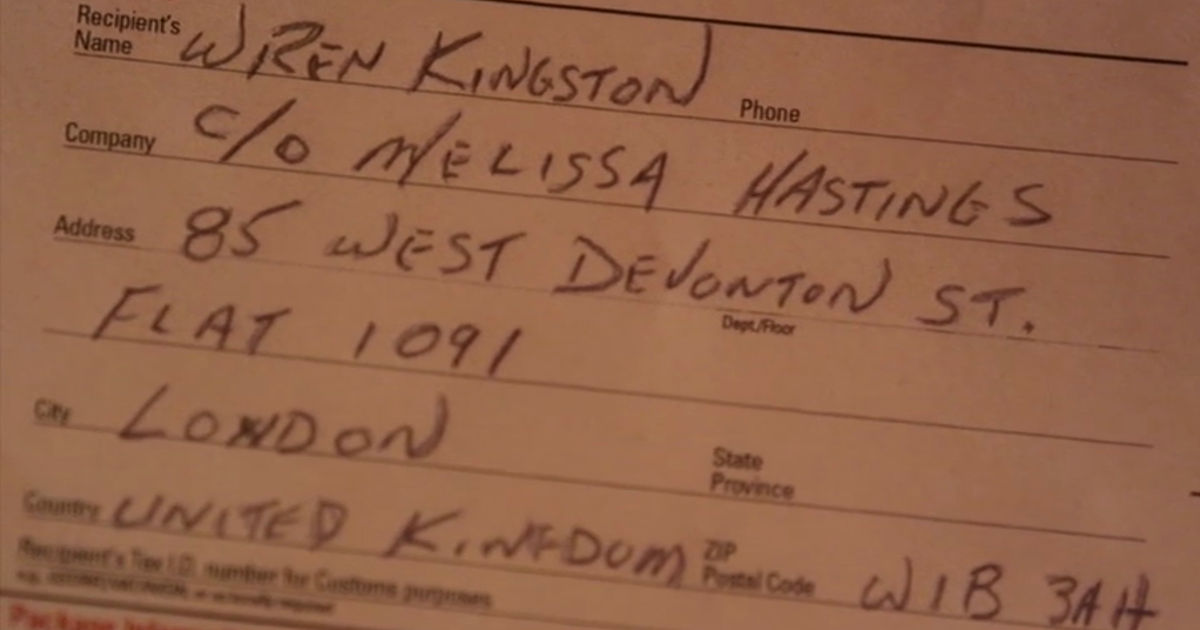 Recipient's Name WREN KINGSTON Phone
Company C/O MELISSA HASTINGS
Address 85 WEST DEVONTON ST.
FLAT 1091 Dept./Floor
City LONDON State Province
Country UNITED KINGDOM ZIP Postal Code W1B 3AH
Recipient's Tax I.D. number for Customs purposes
Package